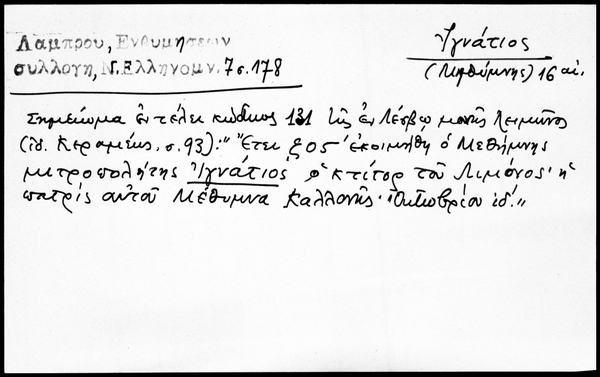 Λάμπρου, Ενθυμήσεων
συλλογή, Ν. Ελληνομν. 7 σ. 178
Ἰγνάτιος
(Μηθύμνης) 16 αἰ.
Σημείωμα ἐν τέλει κώδικος 131 τῆς ἐν Λέσβῳ μονῆς Λειμῶνος
(ἰδ. Κεραμέως, σ. 93): " Ἔτει ζος ' ἐκοιμήθη ὁ Μεθήμνης
μετροπολήτης Ἰγνάτιος ὁ κτίτορ τοῦ Λιμόνος· ἡ
πατρίς αὐτοῦ Μέθυμνα Καλλονῆς· Ὀκτωβρίου ιδ. "